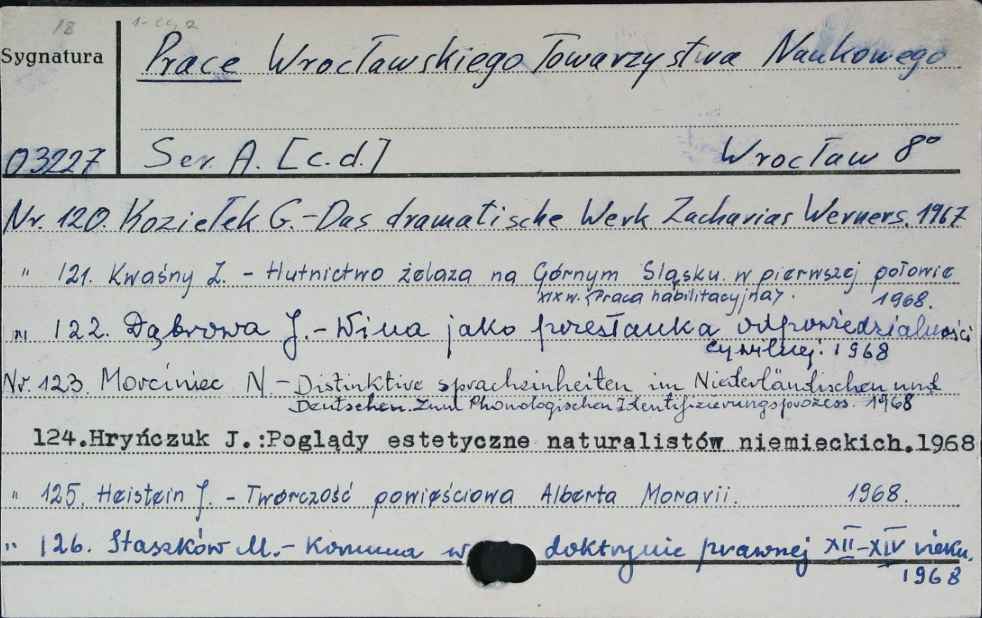 18 1-
Sygnatura
Prace Wrocławskiego Towarzystwa Naukowego
03227 Ser. A. [c.d.] Wrocław 8°
Nr. 120. Koziełek G.-Das dramatische Werk Zacharias Werners. 1967
" 121. Kwaśny Z. - Hutnictwo żelaza na Górnym Śląsku w pierwszej połowie
XIX w. (Praca habilitacyjna). 1968.
" 122. Dąbrowa J.- Wina jako przesłanka odpowiedzialności
cywilnej. 1968
Nr. 123. Morciniec N - Distinktive spracheinheiten im Niederländischen und
Deutschen. Zum Phonologischen Identifizierungsprozess. 1968
124.Hryńczuk J.:Poglądy estetyczne naturalistów niemieckich.1968
" 125. Heistein J. - Twórczość powieściowa Alberta Moravii. 1968.
" 126. Staszków M.- Komuna w doktrynie prawnej XII-XIV wieku.
1968